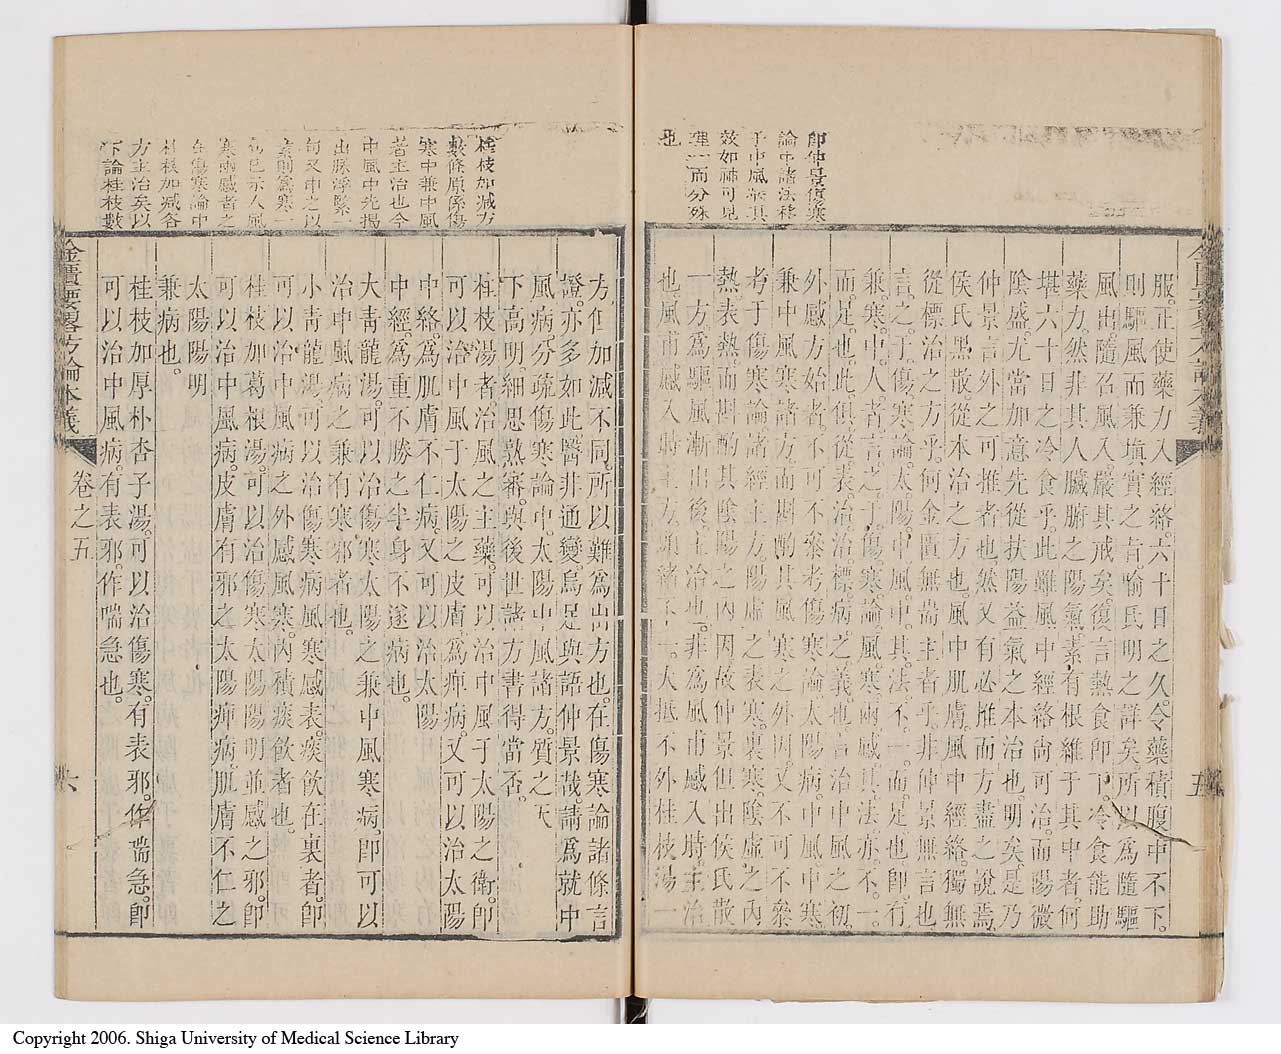 即仲景傷寒
論中諸法移
于中風家其
效如神可見
理一而分殊
也
服。正使藥力入經絡。六十日之久。令藥積腹中不下。
則驅風而兼塡實之旨。喻氏明之詳矣。所以爲隨驅
風出。隨召風入。嚴其戒矣。復言熱食卽下。冷食能助
藥力。然非其人臟腑之陽氣。素有根維于其中者。何
堪六十日之冷食乎。此雖風中經絡尙可治。而陽微
陰盛。尤當加意先從扶陽益氣之本治也。明矣。是乃
仲景言外之可推者也。然又有必推而方盡之說焉。
侯氏黑散。從本治之方也。風中肌膚。風中經絡。獨無
從標治之方乎。何金匱無耑主者乎。非仲景無言也
言。之于。傷寒論。太陽中風中。其法不一。而足也。卽有
兼。寒中人。者言之于。傷寒論。風寒兩感。其法亦不一。
而足也。此俱從表治。治標病之義也。言治中風之初。
外感方始者。不可不叅考傷寒論。太陽病中風中寒
兼中風寒諸方。而斟酌其風寒之外因。又不可不叅
考于傷寒論諸經主方。陽虛之表寒。裏寒。陰虛之內
熱表熱。而斟酌其陰陽之內因。故仲景但出侯氏散
一方。爲驅風漸出後。主治也。非爲風甫感入時。主治
也。風甫感入時主方頭緒不一。大抵不外桂枝湯一
五
桂枝加減方
數條原係傷
寒中兼中風
者主治也今
中風中先揭
出脉浮緊
句又申之以
緊則爲寒一
句已示人風
寒兩感者之
在傷寒論中
桂枝加減各
方主治矣以
下論桂枝數
方。但加減不同。所以難爲出方也。在傷寒論諸條言
證。亦多如此。醫非通變。烏足與語仲景哉。請爲就中
風病。分疏傷寒論中。太陽中風諸方。質之天
下高明。細思熟審。與後世諸方書得當否。
桂枝湯者。治風之主藥。可以治中風于太陽之衛。卽
可以治中風于太陽之皮膚。爲痺病。又可以治太陽
中絡。爲肌膚不仁病。又可以治太陽
中經。爲重不勝之半身不遂病也。
大靑龍湯。可以治傷寒太陽之兼中風寒病。卽可以
治中風病之兼有寒邪者也。
小靑龍湯。可以治傷寒病風寒感表。痰飮在裏者。卽
可以治中風病之外感風寒。內積痰飮者也。
桂枝加葛根湯。可以治傷寒太陽陽明並感之邪。卽
可以治中風病。皮膚有邪之太陽痺病肌膚不仁之
太陽陽明
兼病也。
桂枝加厚朴杏子湯。可以治傷寒。有表邪。作喘急。卽
可以治中風病。有表邪。作喘急也。
金匱要略方論本義
卷之五
六
Copyright 2006. Shiga University of Medical Science Library